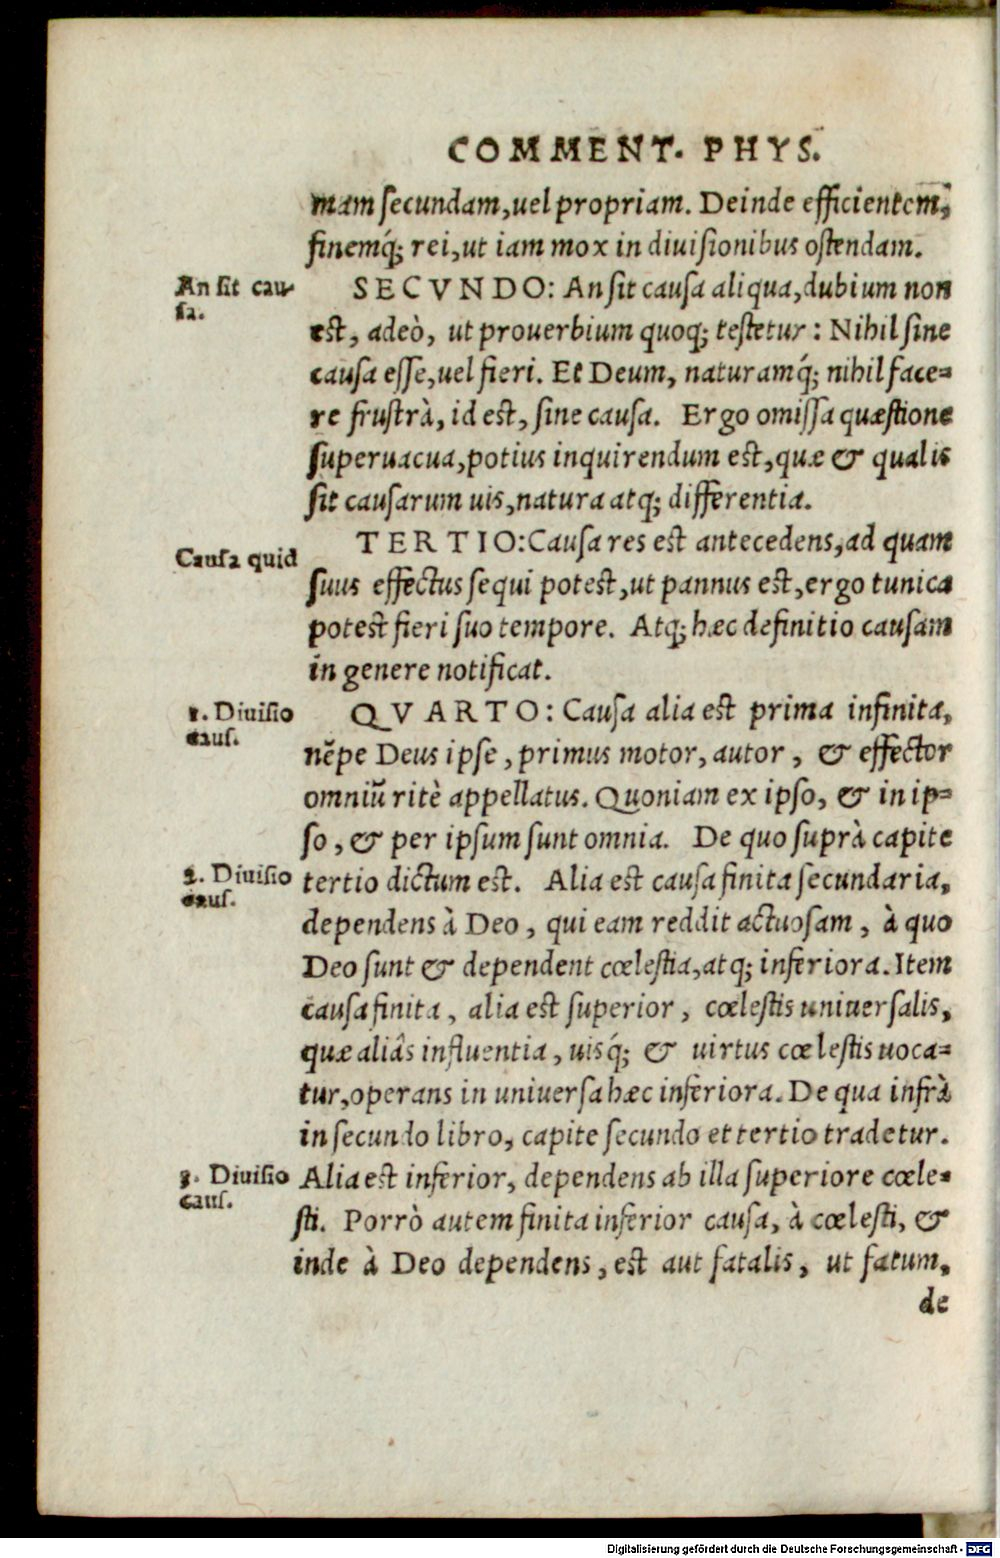 COMMENT. PHYS.
mam secundam, uel propriam. Deinde efficientem,
finemq́; rei, ut iam mox in diuisionibus ostendam.
An sit cau-
sa.
SECVNDO: An sit causa aliqua, dubium non
est, adeò, ut prouerbium quoq; testetur: Nihil sine
causa esse, uel fieri. Et Deum, naturamq́; nihil face=
re frustrà, id est, sine causa. Ergo omissa quæstione
superuacua, potius inquirendum est, quæ & qualis
sit causarum uis, natura atq; differentia.
Causa quid
TERTIO: Causa res est antecedens, ad quam
suus effectus sequi potest, ut pannus est, ergo tunica
potest fieri suo tempore. Atq; hæc definitio causam
in genere notificat.
1. Diuisio
caus.
QVARTO: Causa alia est prima infinita,
nẽpe Deus ipse, primus motor, autor, & effector
omniũ ritè appellatus. Quoniam ex ipso, & in ip=
so, & per ipsum sunt omnia. De quo suprà capite
2. Diuisio
caus.
tertio dictum est. Alia est causa finita secundaria,
dependens à Deo, qui eam reddit actuosam, à quo
Deo sunt & dependent cœlestia, atq; inferiora. Item
causa finita, alia est superior, cœlestis uniuersalis,
quæ aliâs influentia, uisq́; & uirtus cœlestis uoca=
tur, operans in uniuersa hæc inferiora. De qua infrà
in secundo libro, capite secundo et tertio tradetur.
3. Diuisio
caus.
Alia est inferior, dependens ab illa superiore cœle=
sti. Porrò autem finita inferior causa, à cœlesti, &
inde à Deo dependens, est aut fatalis, ut fatum,
de
Digitalisierung gefördert durch die Deutsche Forschungsgemeinschaft - DFG